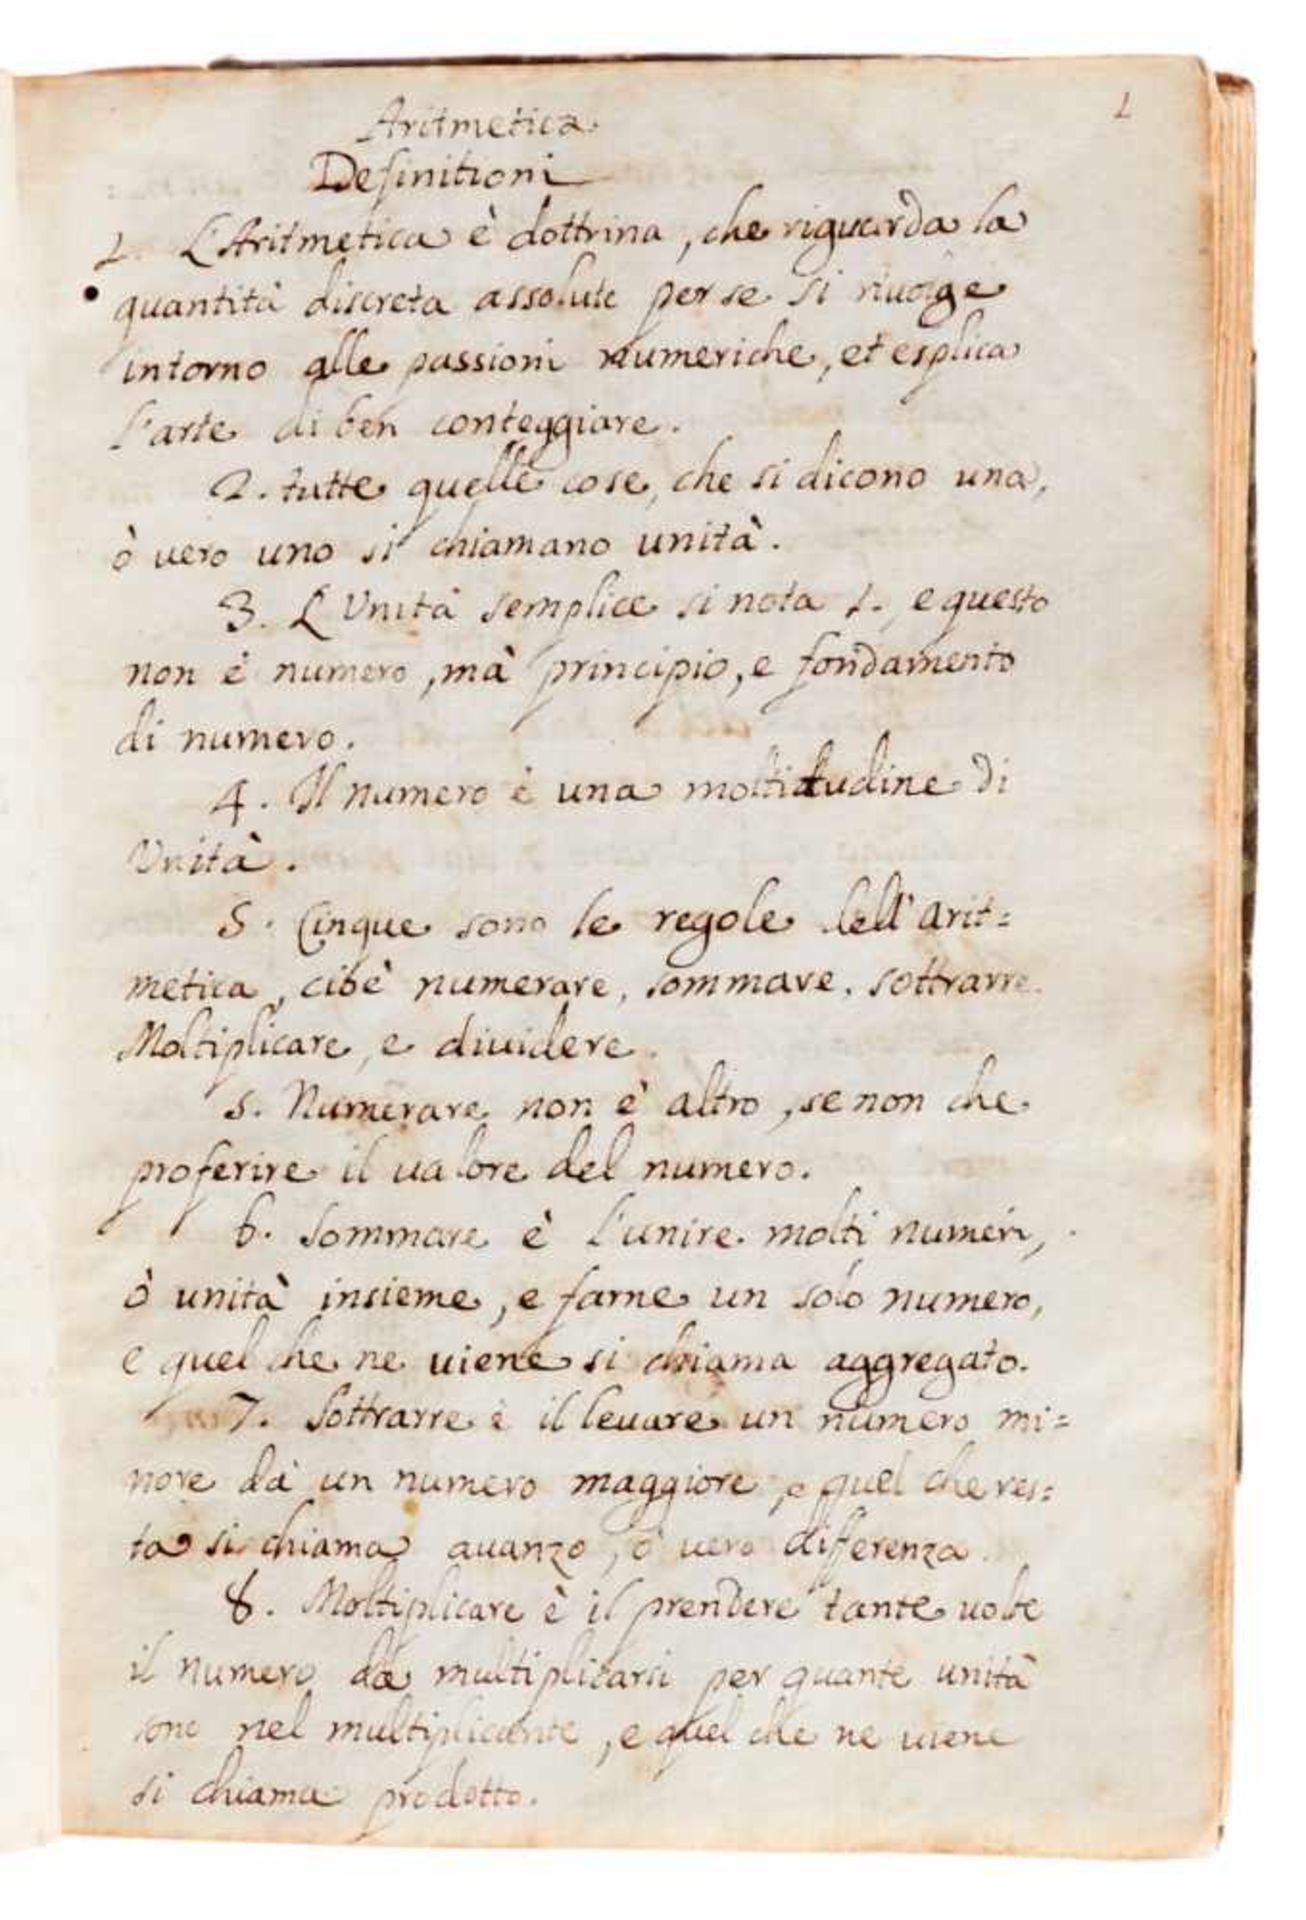 1
Aritmetica
Definitioni
1. L'Aritmetica è dottrina, che riguarda la
quantità discreta assolute per se si riuolge
intorno alle passioni numeriche, et esplica
l'arte di ben conteggiare.
2. tutte quelle cose, che si dicono una,
ò vero uno si chiamano unità.
3. L'Unità semplice si nota 1., e questo
non è numero, mà principio, e fondamento
di numero.
4. Il numero è una moltitudine di
Unità.
5. Cinque sono le regole dell'Arit=
metica, cioè numerare, sommare, sottrarre,
Moltiplicare, e diuidere.
5. Numerare non è altro, se non che
proferire il ualore del numero.
6. Sommare è l'unire molti numeri,
ò unità insieme, e farne un solo numero,
e quel che ne uiene si chiama aggregato.
7. Sottrarre è il leuare un numero mi=
nore dà un numero maggiore, e quel che res=
ta si chiama auanzo, ò uero differenza.
8. Moltiplicare è il prendere tante uolte
il numero da multiplicarsi per quante unità
sono nel multiplicante, e quel che ne uiene
si chiama prodotto.